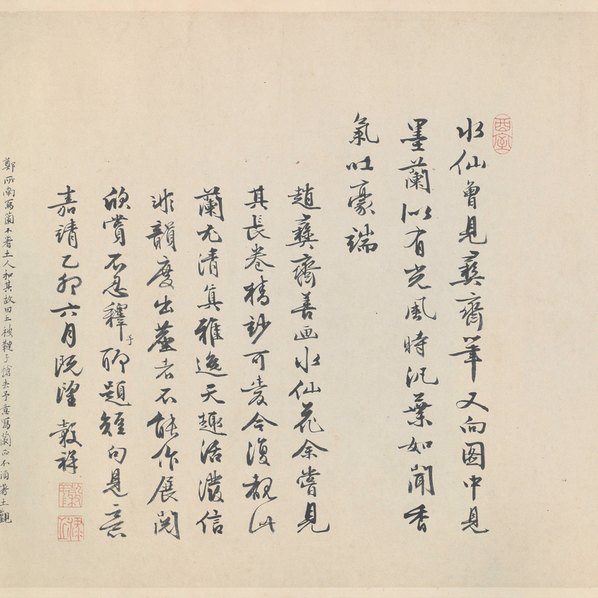 酉室
水仙曾見彝齋筆又向圖中見
墨蘭似有光風時汎葉如聞香
氣吐豪端
趙彝齋善画水仙花余嘗見
其長卷精妙可愛今復覩此
蘭尤清真雅逸天趣活潑信
非韻度出塵者不能作展閱
欣賞不忍釋手聊題短句見意
嘉靖乙卯六月既望穀祥
鄭所南寫蘭不著土人扣其故曰土被韃子偷去予意寫蘭正不須著土觀